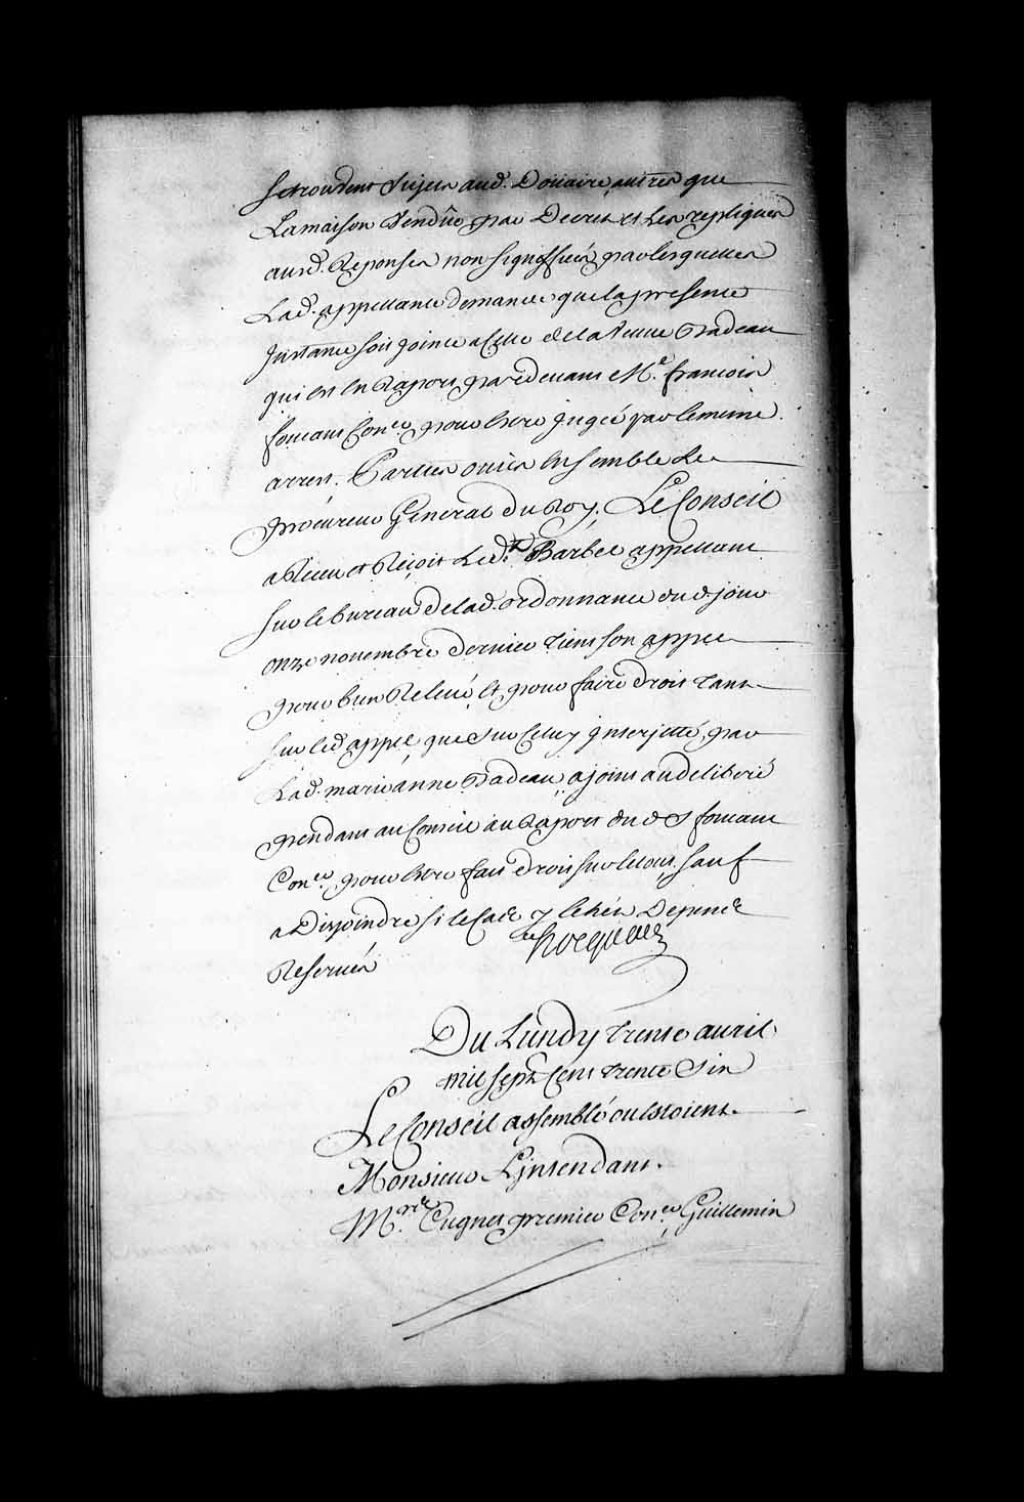 se trouvent sujets aud. Doüaire autres que
La maison Vendüe par Decret et Les repliques
ausd. Reponses non signiffiées par lesquelles
Lad. appellante demande que la presente
Instance soit jointe a Celle de la Veuve Badeau
qui est en Raport pardevant Me. francois
foucault Coner. pour estre jugée par le meme
arrest. Parties ouies Ensemble Le
procureur General du Roy, Le Conseil
a Receu et Reçoit Led. Barbel appellant
sur le bureau de lad. ordonnance dud. jour
onze novembre dernier tient son appel
pour bien Relevé, Et pour faire droit tant
sur led appel que sur Celuy interjetté par
Lad. marie anne Badeau, a joint au deliberé
pendant au Conseil au Raport dud S foucault
Coner. pour Estre fait droit sur le tout, sauf
a Disjoindre si le Cas y Echet Depens
Reservés
Hocquart
Du Lundy trente avril
mil sept Cent trente Six
Le Conseil assemblé ou Estoient
Monsieur L'intendant.
Mrs. Cugnet premier Coner Guillemin